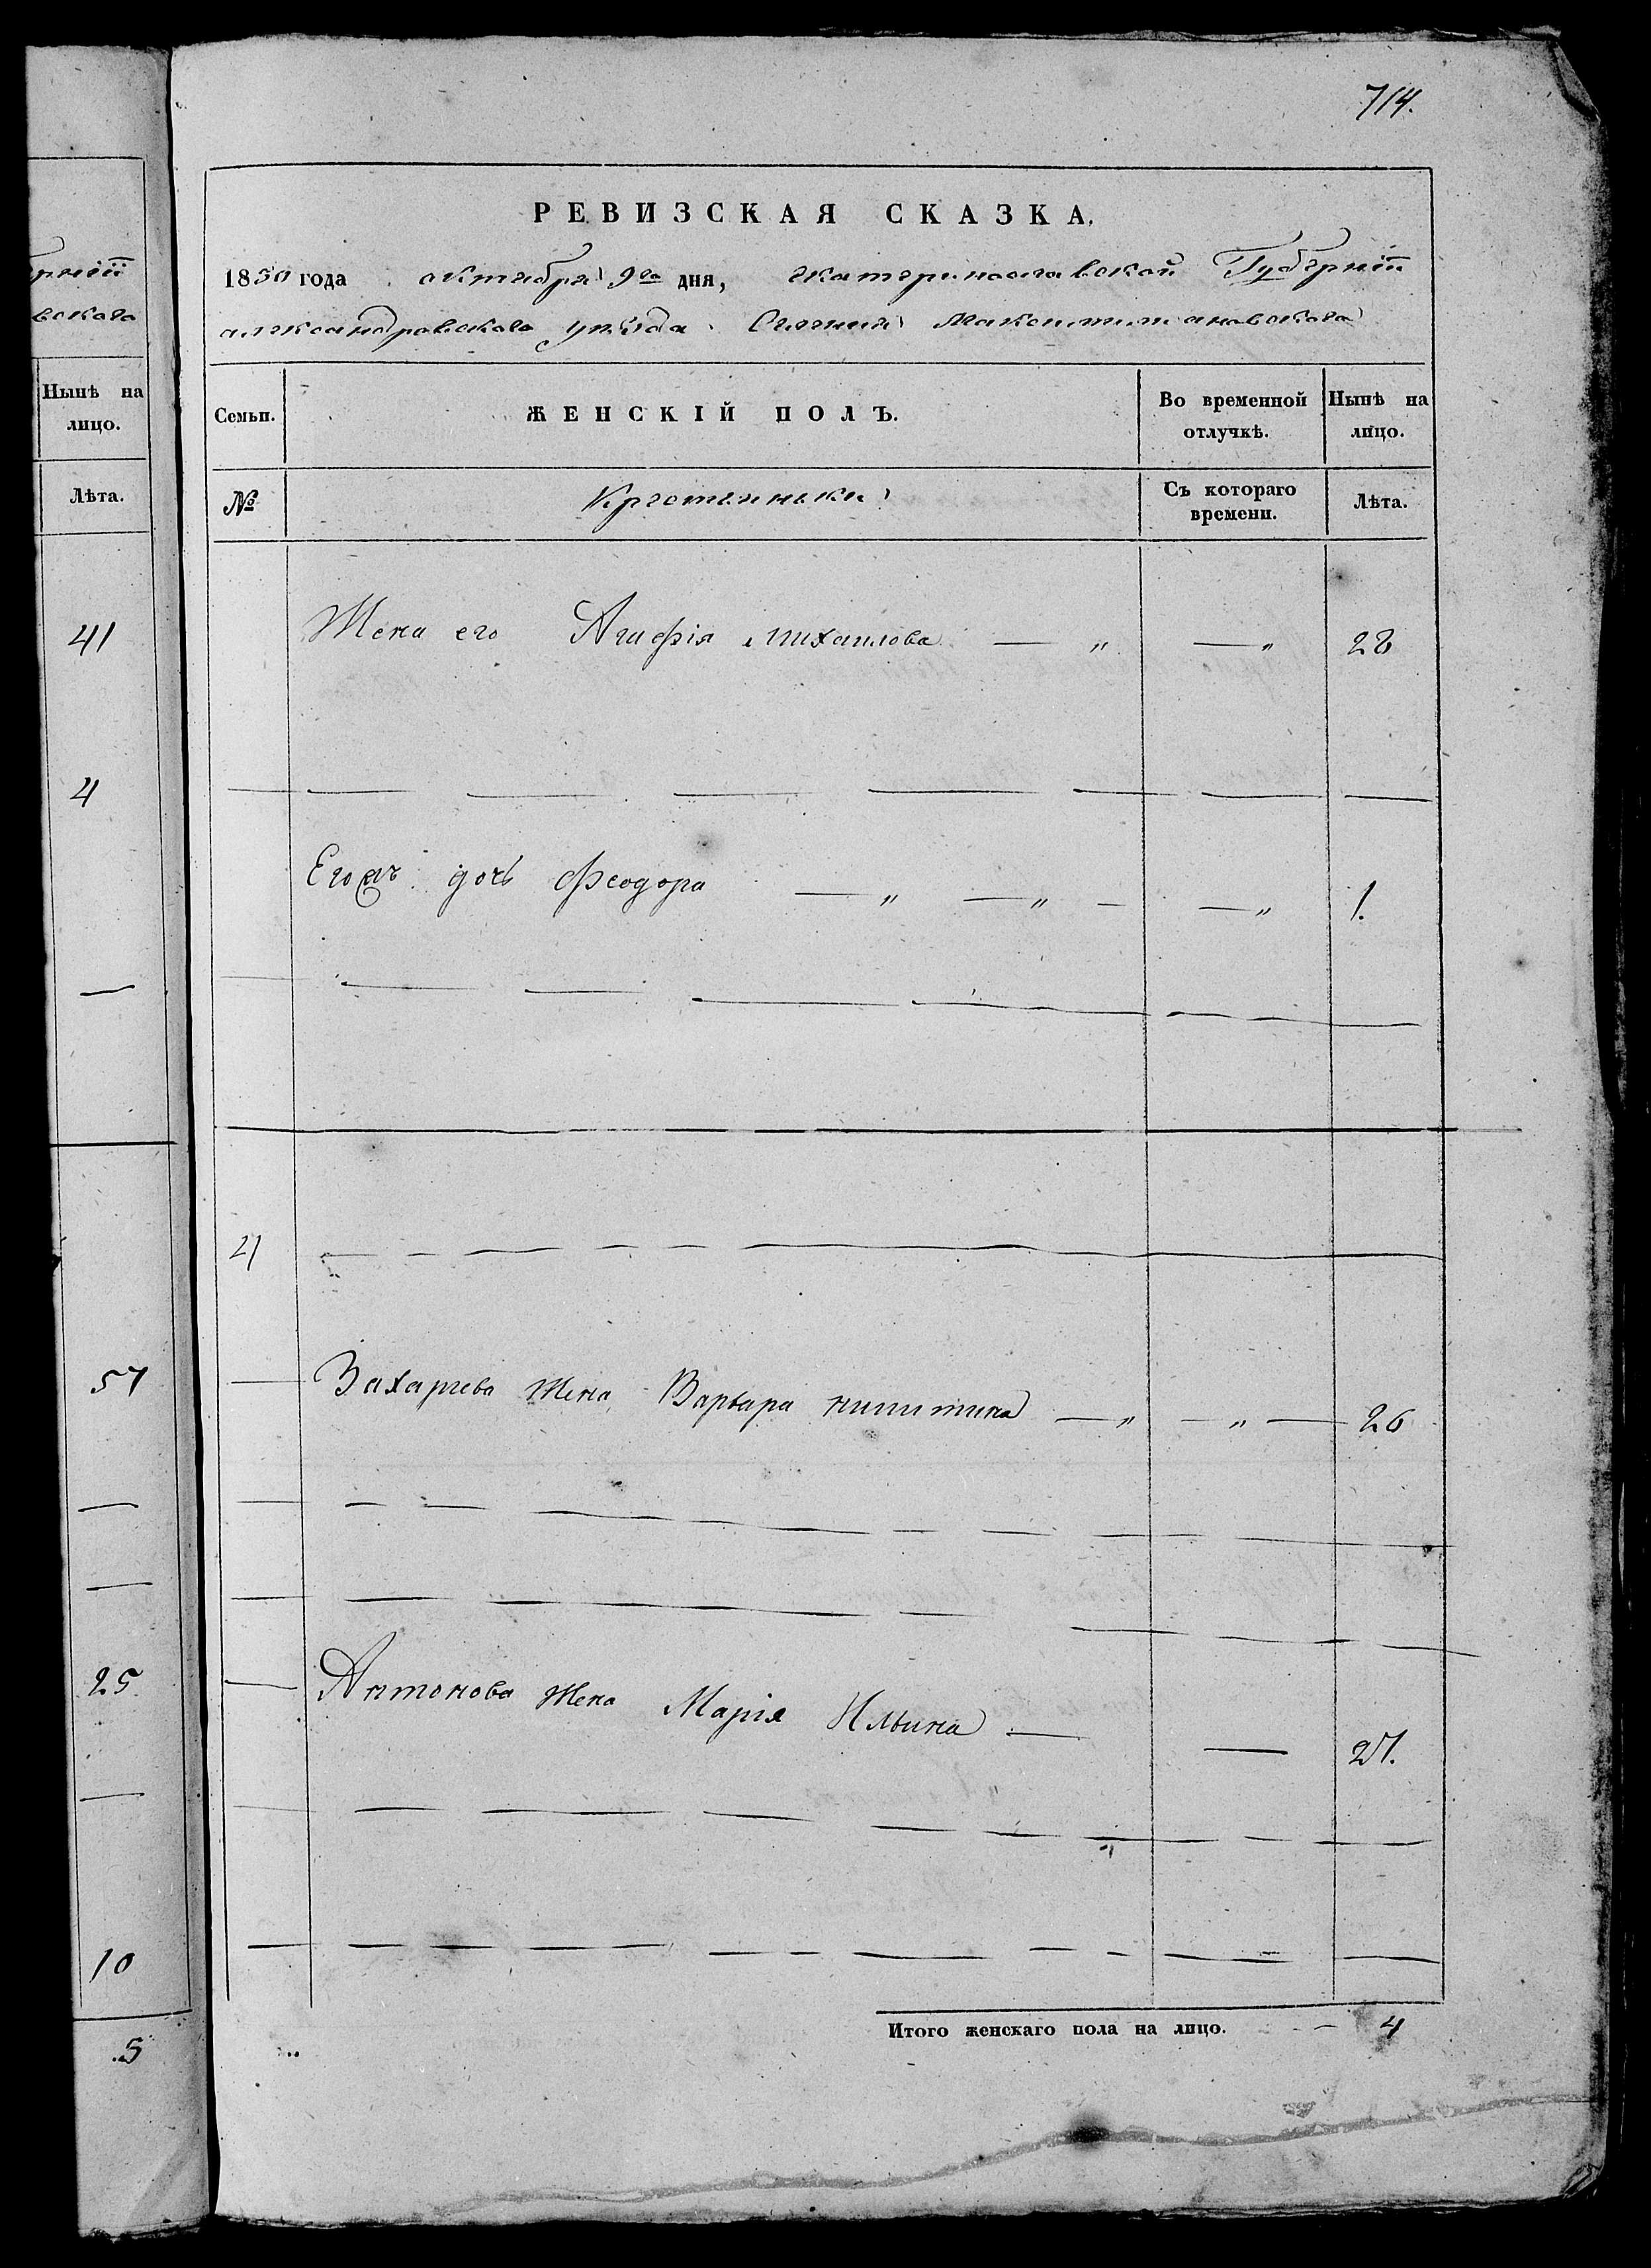 714.
РЕВИЗСКАЯ СКАЗКА.
1850 года октября 9го дня, екатеринославской Губерніи
александровского уезда Селения Максимилиановского
рніи
вского
Нынѣ на лицо.
Лѣта.
41
4
—
57
—
—
25
—
10
5
Семьи. ЖЕНСКІЙ ПОЛЪ. Во временной отлучкѣ. Нынѣ на лицо.
№ Крестьянъки Съ котораго времени. Лѣта.
Жена его Агафія михаилова — „ — „ 28
дочь Феодора — „ — „ — — „ 1.
21
Захариева жена Варвара никитина — „ — „ — 26
Антонова жена Марія Ильина — — 27.
Итого женскаго пола на лицо. — 4